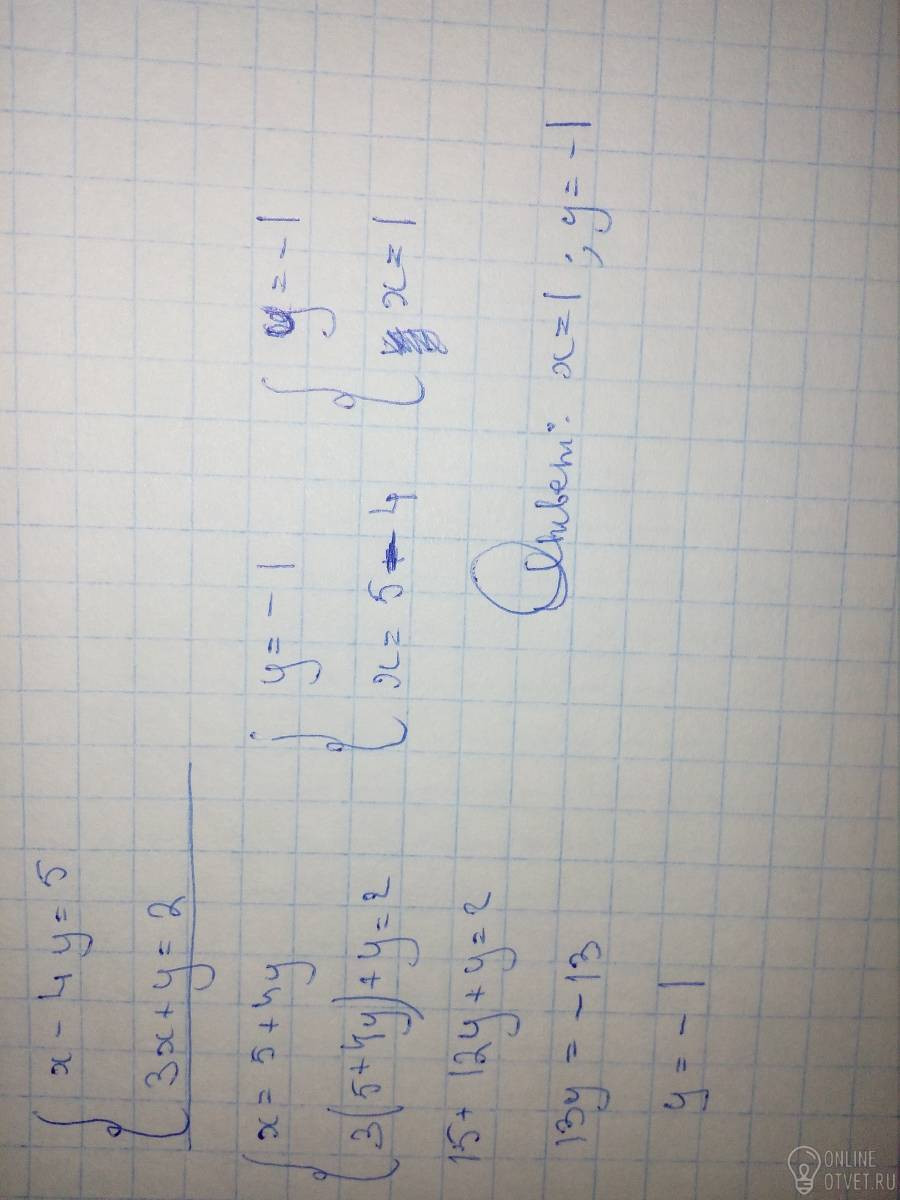 { x - 4y = 5
3x + y = 2
{ x = 5 + 4y
3(5 + 4y) + y = 2
15 + 12y + y = 2
13y = - 13
y = - 1
{ y = - 1
x = 5 - 4
{ y = - 1
x = 1
Ответ: x = 1 ; y = - 1
ONLINE
OTVET.RU